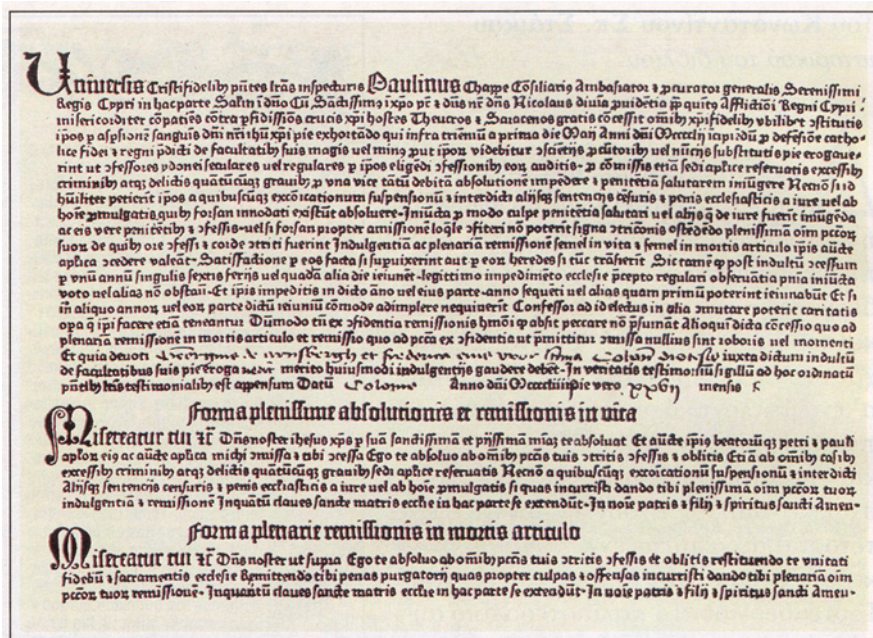 Universis Cristifidelibꝫ p̄ntes l̄ras inspecturis Paulinus Chappe Cōsiliariꝯ Ambasiator ⁊ ꝓcurator generalis Serenissimi
Regis Cypri in hac parte Saɫm i dño Cū Sāctissimꝯ ī xp̄o pr̄ ⁊ dñs nr̄ dñs Nicolaus diuīa ꝓuidētia pp̄ quītꝯ Afflictiōi Regni Cypri
misericorditer cōpatiēs cōtra ꝑfidissīos crucis xp̄i hostes Theucros ⁊ Saracenos gratis cōcessit om̄ibꝫ xp̄ifidelibꝫ vbilibet ꝯstitutis
ip̄os ꝑ asp̄sionē sanguīs dñi nr̄i ih̄u xp̄i pie exhortādo qui infra triēniū a prima die Maij Anni dñi Mcccclij īcipiēdū ꝓ defēsiōe catho-
lice fidei ⁊ regni p̄dicti de facultatibꝫ suis magis vel minꝯ ꝓut ip̄oꝝ videbitur ꝯsciētijs ꝓcuratoribꝫ vel nūcijs substitutis pie erogaue-
rint ut ꝯfessores ydonei seculares vel regulares ꝑ ip̄os eligēdi ꝯfessionibꝫ eoꝝ auditis · ꝓ cōmissis etiā sedi apłice reseruatis excessibꝫ
criminibꝫ atqꝫ delictis quātūcūqꝫ grauibꝫ ꝓ una vice tātū debitā absolutionē impēdere ⁊ penitētiā salutarem iniūgere Necnō si id
hūiliter petierīt ip̄os a quibuscūqꝫ excōicationum suspensionū ⁊ interdicti alijsqꝫ sentencijs cēsuris ⁊ penis ecclesiasticis a iure uel ab
hoīe ꝓmulgatis quibꝫ forsan innodati existūt absoluere · Iniūcta ꝓ modo culpe penitētia salutari uel alijs q̄ de iure fuerīt iniūgēda
ac eis vere penitētibꝫ ⁊ ꝯfessis · uel si forsan propter amissionē loq̄le ꝯfiteri nō poterīt signa ꝯtricōnis ostēdēdo plenissimā oīm pctō℞
suoꝝ de quibꝫ ore ꝯfessi ⁊ corde ꝯtriti fuerint Indulgentiā ac plenariā remissionē semel in vita ⁊ semel in mortis articulo ip̄is aūcte
apłica ꝯcedere valeāt · Satisfactione ꝑ eos facta si suꝑuixerint aut ꝑ eoꝝ heredes si tūc trāsierīt · Sic tamē ꝙ post indultū ꝯcessum
ꝑ vnū annū singulis sextis ferijs uel quadā alia die ieiunēt · legittimo impedimēto ecclesie p̄cepto regulari obseruātia pn̄ia iniūcta
voto uel alias nō obstañ · Et ip̄is impeditis in dicto āno uel eius parte · anno sequēti uel alias quam primū poterint ieiunabūt Et si
in aliquo annoꝝ uel eoꝝ parte dictū ieiuniū cōmode adimplere nequiuerīt Confessor ad id electus in alia ꝯmutare poterit caritatis
opa q̄ ip̄i facere etiā teneantur Dūmodo tn̄ ex ꝯfidentia remissionis hmōi qꝺ absit peccare nō p̄sumāt Alioqui dicta cōcessio quo ad
plenariā remissionē in mortis articulo et remissio quo ad pctā ex ꝯfidentia ut p̄mittitur ꝯmissa nullius sint roboris uel momenti
Et quia deuoti iuxta dictum indultū
de facultatibus suis pie erogauerunt merito huiusmodi indulgentijs gaudere debēt · In veritatis testimoniū sigillū ad hoc ordinatū
pn̄tibꝫ l̄ris testimonialibꝫ est appensum Datū Colonie Anno dñi Mccccliiij die vero xxvij mensis
Forma plenissime absolutionis et remissionis in vita
Misereatur tui ⁊c̄ Dñs noster ihesus xp̄s ꝑ suā sanctissimā et pijssimā mīaꝫ te absoluat Et aūcte ip̄iꝯ beatorūqꝫ petri ⁊ pauli
apłoꝝ eiꝯ ac aūcte apłica michi ꝯmissa ⁊ tibi ꝯcessa Ego te absoluo ab om̄ibꝫ pctīs tuis ꝯtritis ꝯfessis ⁊ oblitis Etiā ab om̄ibꝫ casibꝫ
excessibꝫ criminibꝫ atqꝫ delictis quātūcūqꝫ grauibꝫ sedi apłice reseruatis Necnō a quibuscūqꝫ excōicationū suspensionū ⁊ interdicti
Alijsqꝫ sentencijs censuris ⁊ penis ecclesiasticis a iure uel ab hoīe ꝓmulgatis si quas incurristi dando tibi plenissimā oīm pctōꝝ tuoꝝ
indulgentiā ⁊ remissionē Inquātū claues sancte matris ecclīe in hac parte se extendūt · In noīe patris ⁊ filij ⁊ spiritus sancti Amen ·
Forma plenarie remissionis in mortis articulo
Misereatur tui ⁊c̄ Dñs noster ut supra Ego te absoluo ab om̄ibꝫ pctīs tuis ꝯtritis ꝯfessis et oblitis restituendo te unitati
fideliū ⁊ sacramentis ecclesie Remittendo tibi penas purgatorij quas propter culpas ⁊ offensas incurristi dando tibi plenariā oīm
pctōꝝ tuoꝝ remissionē · Inquātū claues sancte matris ecclīe in hac parte se extendūt · In noīe patris ⁊ filij ⁊ spiritus sancti Amen ·